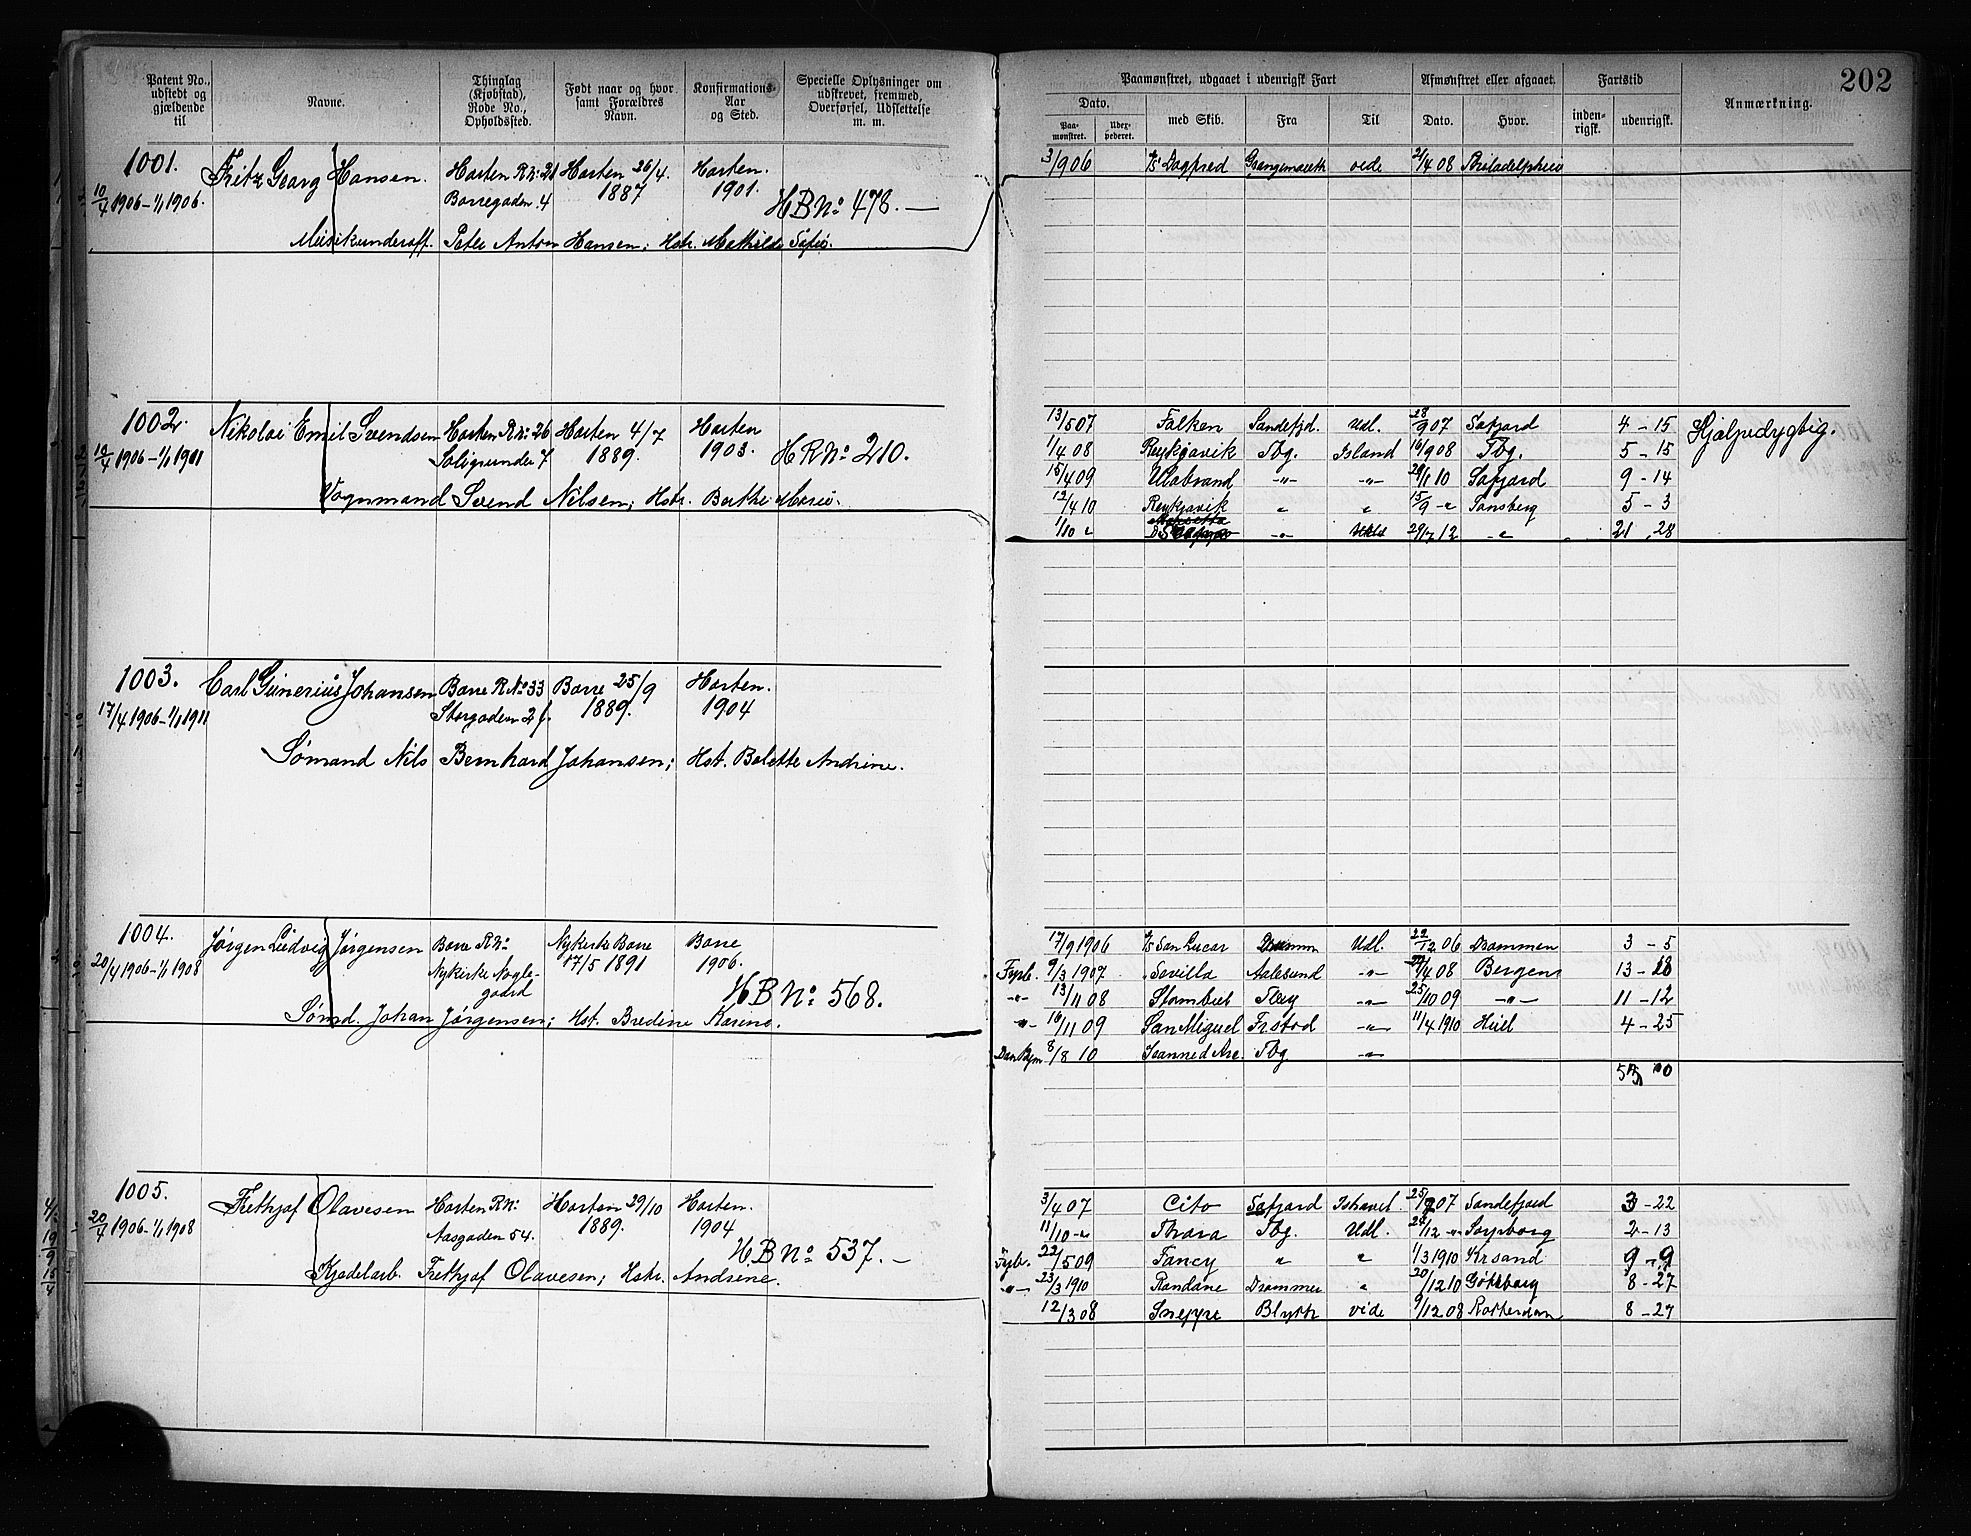 Patent No., udstedt og gjældende til
Navne.
Thinglag (Kjøbstad), Rode No., Opholdssted.
Født naar og hvor samt Forældres Navn.
Konfirmations-Aar og Sted.
Specielle Oplysninger om udskrevet, fremmed, Overførsel, Udslettelse m. m.
1001. Fritz Georg Hansen. Horten R.No: 21 Horten 26/4. Horten.
10/4 1906 – 1/1 1906. Borregaden 4 1887 1901. HB No: 478. —
Peter Anton Hansen; Hstr. Mathilde
1002. Nikolai Emil Svendsen Horten R.No: 26 Horten 4/7 Horten
1906 – 1/1 1911 1889. 1903. HRNo: 210.
Vognmand Svend Nilsen; Hstr. Berthe
1003. Carl Gunerius Johansen Borre R No 33 Borre 25/9 Horten.
17/4 1906 – 1/1 1911 Storgaden 1889. 1904
Sømand Nils Bernhard Johansen; Hst. Bolette Andrine.
1004. Jørgen Ludvig Jørgensen Borre R.No: Nykirke Borre Borre
20/4 1906 – 1/1 1908 Nykirke 17/5 1891 1906.
HB No: 568.
Sømd. Johan Jørgensen; Hst. Bredine Karine.
1005. Frethjof Olavesen Horten R.No: Horten 29/10 Horten.
20/4 1906 – 1/1 1908 Aasgaden 54. 1889. 1904
HB No: 537. —
Kjedelarb. Frethjof Olavesen; Hstr. Andrine.
202
Paamønstret, udgaaet i udenrigsk Fart
Afmønstret eller afgaaet.
Fartstid
Anmærkning.
Dato.
Paa-mønstret.
Udex-pederet.
med Skib.
Fra
Til
Dato.
Hvor.
inden-rigsk.
udenrigsk.
3/9 06 vide 2/4 08 Philadelphia
13/5 07 Falken Sandefjd. Udl. 28/9 07 4 – 15 Hjælpedygtig.
1/4 08 Reykjavik Tbg. Island 16/9 08 Tbg. 5 – 15
15/4 09 Ulabrand –"– –"– 9 – 14
12/4 10 Reykjavik " " 15/9 –"– Tønsberg 5 – 3
1/10 " –"– –"– 21 . 28
17/9 1906 San Lucar Drammen Udl. 22/12 06 Drammen 3 – 5
9/3 1907 Sevilla Aalesund –"– /4 08 Bergen 13 – 18
–"– 13/11 08 –"– 25/10 09 –"– 11 – 12
–"– 16/11 09 San Miguel Frstad –"– 11/4 1910 4 – 25
8/8 10 Tbg –"–
3/4 07 Cito Ishavet 07 Sandefjord 3 – 22
11/10 –"– Thora Tbg. Udl. 24/12 –"– Sarpsborg 2 – 13
22/5 09 Fancy " " 1/3 1910 Krsand 9 – 9
–"– 23/3 1910 Randane Drammen " 20/12 10 Gøteborg 8 – 27
12/3 08 Blyth vide 9/12 08 Rotterdam 8 – 27